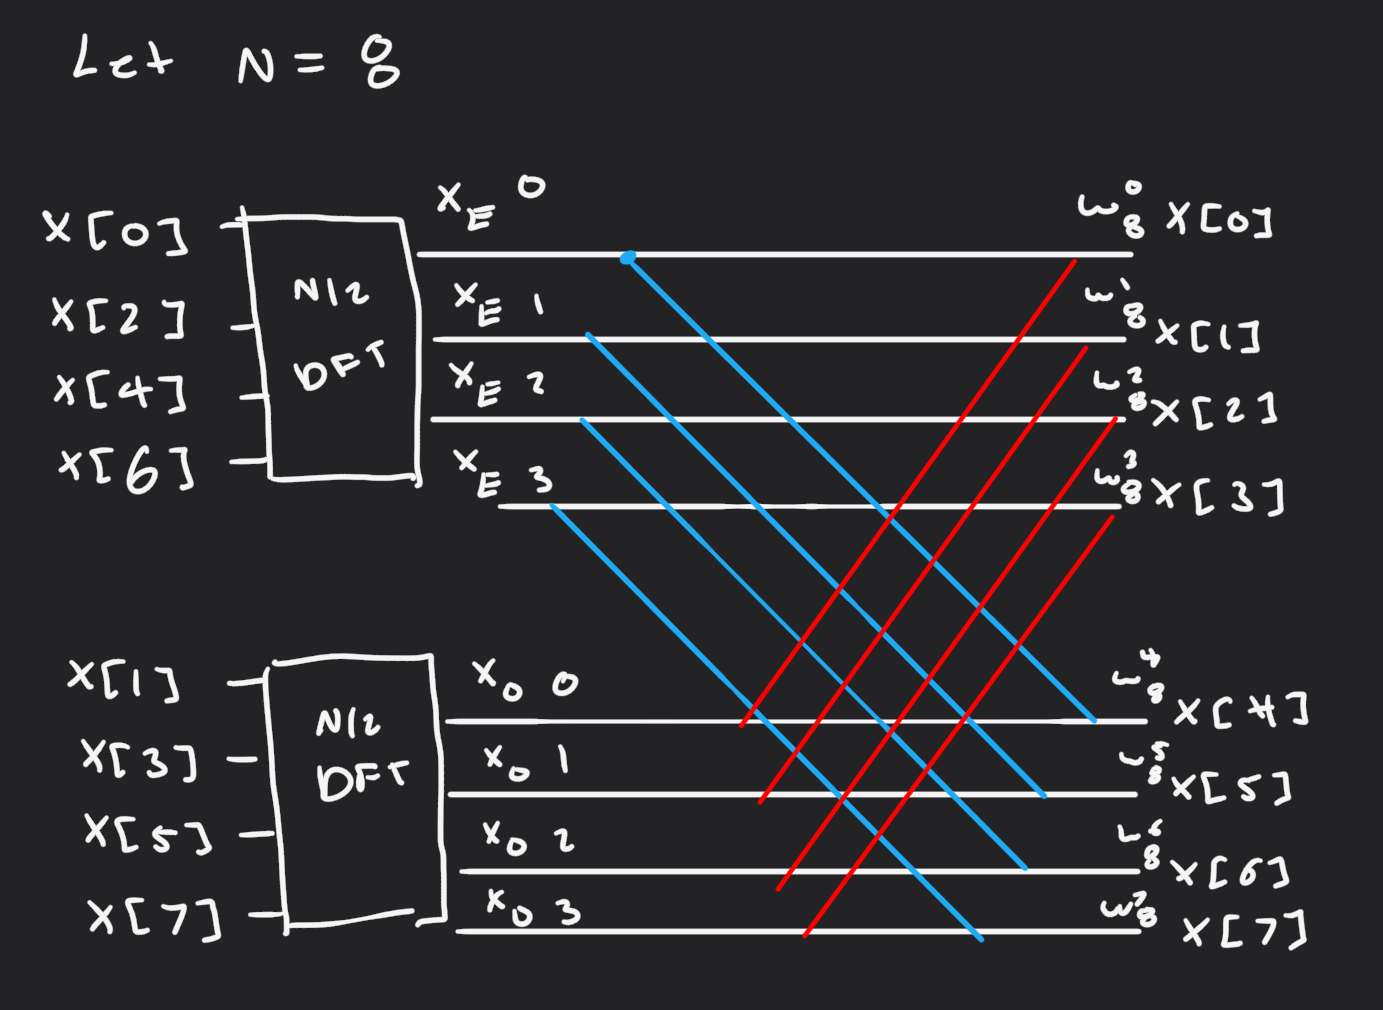 Let N = 8
X[0]
X[2]
X[4]
X[6]
N/2
DFT
X_E 0
X_E 1
X_E 2
X_E 3
ω_8^0 X[0]
ω_8^1 X[1]
ω_8^2 X[2]
ω_8^3 X[3]
X[1]
X[3]
X[5]
X[7]
N/2
DFT
X_O 0
X_O 1
X_O 2
X_O 3
ω_8^4 X[4]
ω_8^5 X[5]
ω_8^6 X[6]
ω_8^7 X[7]